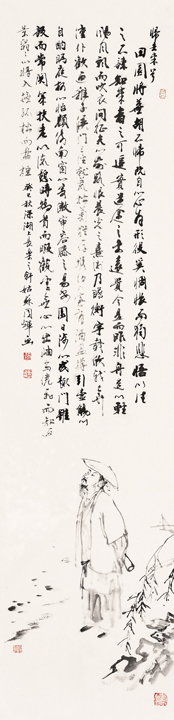 歸去來兮
田園將蕪胡不歸既自以心爲形役奚惆悵而獨悲悟以往
之不諫知來者之可追實迷途其未遠覺今是而昨非舟遙遙以輕
颺風飄飄而吹衣問征夫以前路恨晨光之熹微乃瞻衡宇載欣載奔
僮僕歡迎稚子候門三徑就荒松菊猶存攜幼入室有酒盈樽引壺觴以
自酌眄庭柯以怡顏倚南窗以寄傲審容膝之易安園日涉以成趣門雖
設而常關策扶老以流憩時矯首而遐觀雲無心以出岫鳥倦飛而知還
景翳翳以將入撫孤松而盤桓 癸巳秋深湖上